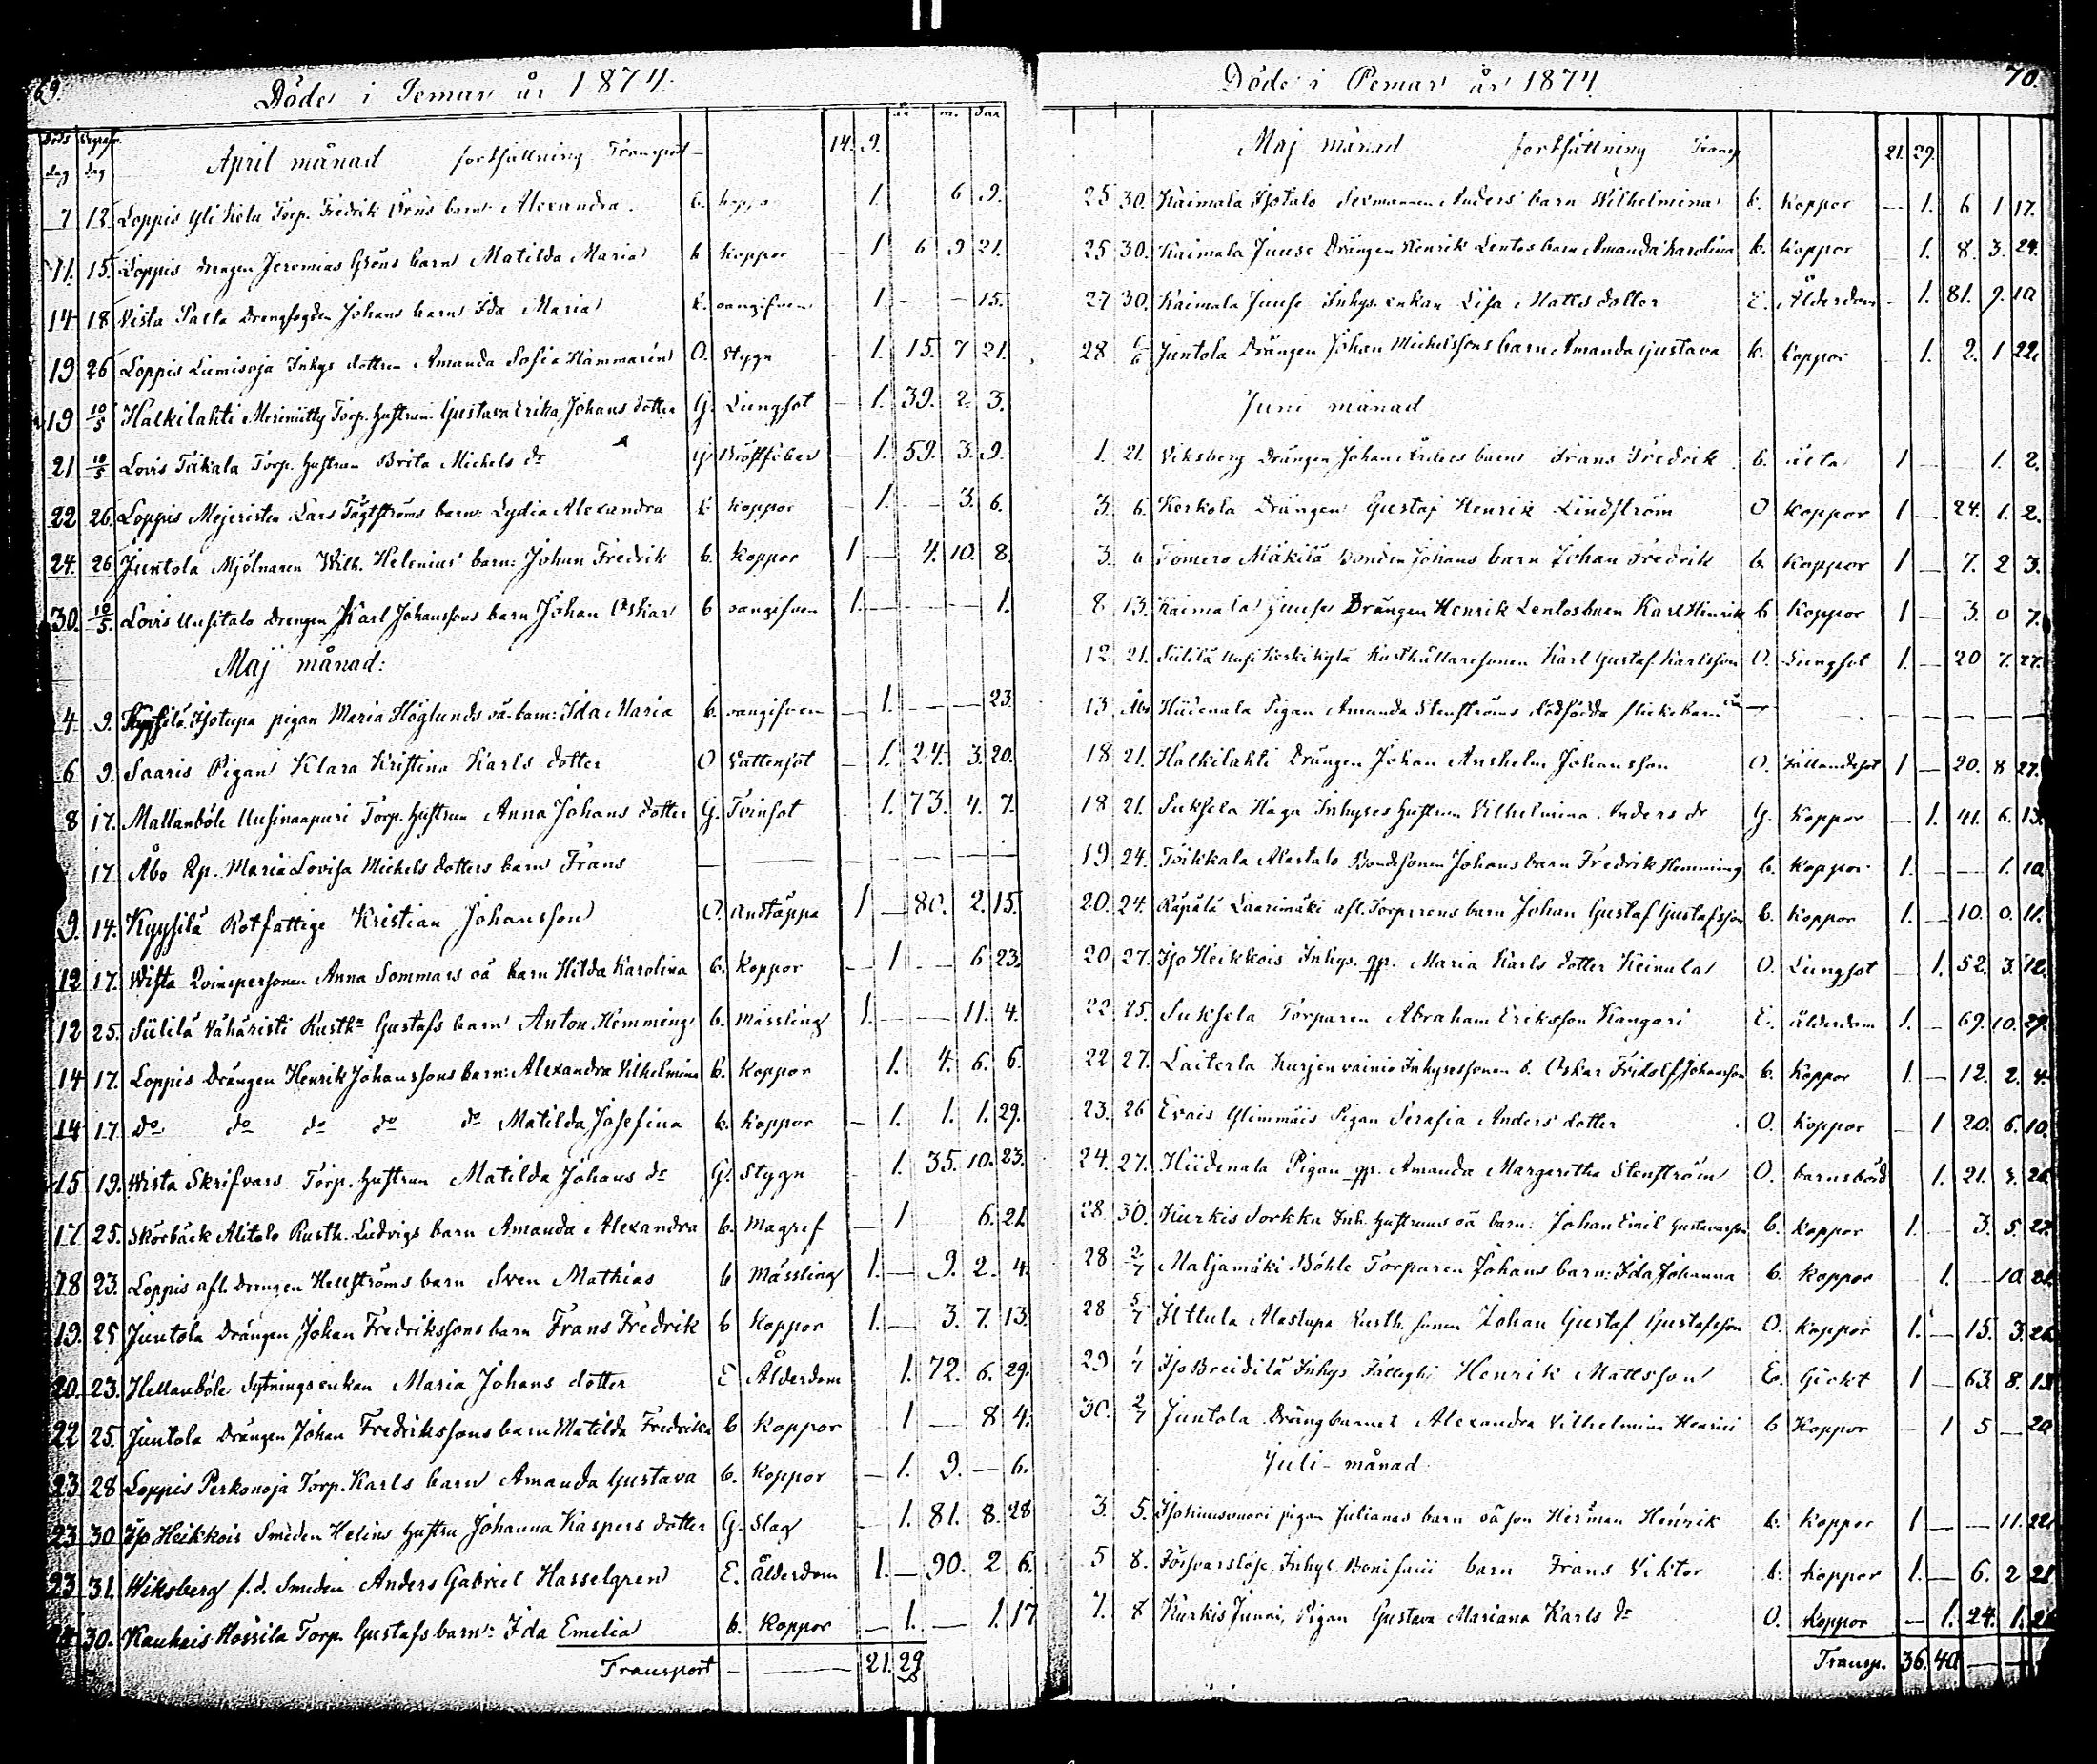 69.
Döde i Pemar år 1874.
Döds dag Begrafn. dag år m. dar
April månad fortsättning Transport — 14. 9.
7 12. Loppis Yli Kelu Torp. Fredrik barn Alexandra. b. 1. 6 9.
11. 15. Loppis drengen Jeremias Gröns barn Matilda Maria b koppor — 1 6 9 21.
14 18 Vista Palta Drengfogden Johans barn Ida Maria b. oangifven 1. — — 15.
19 26 Loppis Liimisoja Inhys dottren Amanda Sofia Hammarén O. Stygn — 1. 15. 7 21.
19 10/5 Halkilahti Meriniitty Torp. hustrun Gustava Erika Johans dotter G. Lungsot — 1. 39. 2. 3.
21 10/5 Lovis Toikala Torp. hustrun Brita Michels dr G Bröstfeber — 1. 59. 3. 9.
22 26. Loppis Mejeristen Lars Tägtströms barn: Lydia Alexandra b koppor — 1. — 3. 6.
24. 26 Juntola Mjölnaren Wilh. Helenius' barn: Johan Fredrik b. koppor 1 — 4. 10. 8.
30. 10/5. Lovis Uusitalo drengen Karl Johanssons barn Johan Oskar b oangifven 1. — — — 1.
Maj månad:
4 9. Kyysilä Isotupa pigan Maria Höglunds oä. barn: Ida Maria b. oangifven — 1. — — 23
6 9. Saaris Pigan Klara Kristina Karls dotter O Vattensot — 1. 24. 3. 20.
8 17. Mallanböle Uusinaapuri Torp. hustrun Anna Johans dotter G. Tvinsot 1. 73. 4. 7.
17 Åbo Qp. Maria Lovisa Michels dotters barn Frans — — — — — —
9. 14. Kyysilä Rotfattige Kristian Johansson O. Andtäppa 1 — 80. 2. 15.
12 17. Wista Qvinspersonen Anna Sommars oä barn Hilda Karolina b. Koppor — 1 — 6 23.
12 25. Siililä Vähäristi Rusth:n Gustafs barn Anton Hemming b. Mässling 1. — — 11. 4.
14 17. Loppis Drängen Henrik Johanssons barn: Alexandra Vilhelmina b. Koppor 1. 4. 6. 6.
14 17 do. do do do do Matilda Josefina b. Koppor — 1. 1. 1. 29.
15 19. Wista Skrifvars Torp. hustrun Matilda Johans dr G. Stygn 1. 35. 10. 23.
17 25. Skörbäck Alitalo Rusth. Ludvigs barn Amanda Alexandra b. Magref — 1 6. 21.
18 23. Loppis afl. drengen Hellströms barn Sven Mathias b Mässling 1. — 9. 2. 4.
19. 25 Juntola Drängen Johan Fredrikssons barn Frans Fredrik b Koppor 1. — 3. 7. 13.
20. 23. Hellanböle Sytningsenkan Maria Johans dotter E Ålderdom 1. 72. 6. 29.
22 25. Juntola Drängen Johan Fredrikssons barn Matilda Fredrika b Koppor 1 — 8 4.
23. 28 Loppis Perkonoja Torp. Karls barn Amanda Gustava b. Koppor — 1. 9. — 6.
23 30 Iso Heikkois Smeden Helins hustru Johanna Kaspers dotter G. Slag — 1. 81. 8. 28
23 31. Wiksberg f.d. Smeden Anders Gabriel Hasselgren E. ålderdom 1. — 90. 2 6.
30. Kauhais Hossila Torp. Gustafs barn: Ida Emelia b. Koppor — 1. — 1. 17
Transport — — 21. 29
70.
Döde i Pemar år 1874
Maj månad fortsättning Transp 21. 29.
25 30. Kaimala Isotalo Sexmannen Anders' barn Wilhelmina b. Koppor — 1. 6 1 17.
25 30. Kaimala Juuse Drängen Henrik Lentos barn Amanda Karolina b. Koppor — 1. 8. 3. 24.
27 30. Kaimala Juuse Inhys. enkan Lisa Matts dotter E. Ålderdom — 1. 81. 9. 10
28 Juntola Drängen Johan Michelssons barn Amanda Gustava b. koppor — 1. 2. 1 22.
Juni månad
1. 21. Viksberg Drängen Johan barn Frans Fredrik b. 1 — 1. 2.
3. 6. Kerkola Drängen Gustaf Henrik Lindström O koppor 1 — 24. 1. 2.
3. 6 Tomero Mäkilä Bonden Johans barn Johan Fredrik b. Koppor 1 — 7. 2 3.
8 13. Kaimala Juuse Drängen Henrik Lentos barn Karl Hinrik b Koppor 1 — 3. 0 7.
12 21. Siililä Uusi Keskikylä Rusthållaresonen Karl Gustaf Karlsson O. Lungsot 1. — 20 7. 27.
13 Åbo Hiidenala Pigan Amanda Stenströms dödfödda flickebarn oä — — — — —
18 21. Halkilahti Drängen Johan Anshelm Johansson O. Fallandesot 1 — 20. 8 27.
18 21. Suksela Haga Inhyses hustrun Vilhelmina Anders dr G. Koppor — 1. 41. 6. 13.
19 24. Toikkala Alastalo Bondesonen Johans barn Fredrik Hemming b. Koppor 1. — — 1. 10
20. 24. Räpälä Laarimäki afl. Torparens barn Johan Gustaf Gustafsson b. Koppor 1. — 10. 0. 11.
20 27. Iso Heikkois Inhys. qp. Maria Karls dotter Keinula O. Lungsot — 1. 52. 3. 12.
22 25. Suksela Torparen Abraham Eriksson Kangari E. ålderdom 1. — 69. 10. 29.
22 27. Laiterla Kurjenvainio Inhysessonen b. Oskar Fridolf Johansson b. Koppor 1. — 12. 2. 4.
23. 26 Evais Ylimmäis Pigan Serafia Anders dotter O. Koppor — 1 20. 6. 10.
24. 27. Hiidenala Pigan qp. Amanda Margaretha Stenström O. barnsbörd 1. 21.
28 30. Kurkis Sorkka Inh. hustruns oä barn: Johan Emil Gustavsson b. Koppor 1. — 3. 5. 22.
28 2/7 Maljamäki Böhle Torparen Johans barn: Ida Johanna b. Koppor 1. — 10
28 5/7 Ilttula Alastupa Rusth. sonen Johan Gustaf Gustafsson O. Koppor 1. — 15. 3.
29 1/7 Iso Breidilä Inhys Henrik Mattsson E. Gickt 1 — 63. 8. 13.
30. 2/7 Juntola Drängbarnet Alexandra Vilhelmina b Koppor — 1 5 — 20
Juli - månad
3. 5. pigan Julianas barn oä son Herman Henrik b. Koppor 1 — — 11. 22.
5 8. Försvarslöse Inhys. barn Frans Viktor b. Koppor 1. — 6. 2 21
7. 8 Kurkis Junni, Pigan Gustava Mariana Karls dr O. Koppor — 1. 24. 1.
Transp. 36. 40 — —